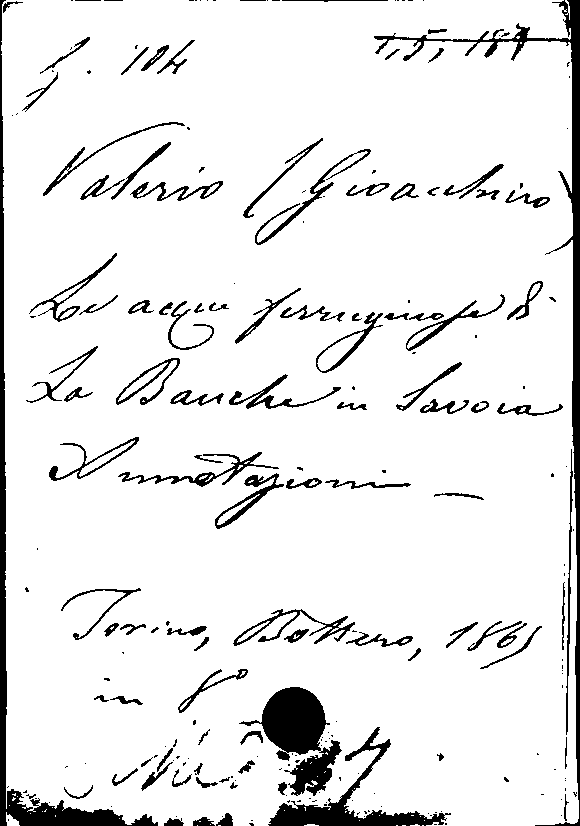 G. 104
1,5, 187
Valerio (Gioacchino)
Le acque ferruginose di
La Bauche in Savoia
Annotazioni —
Torino, Bottero, 1865
in 8°